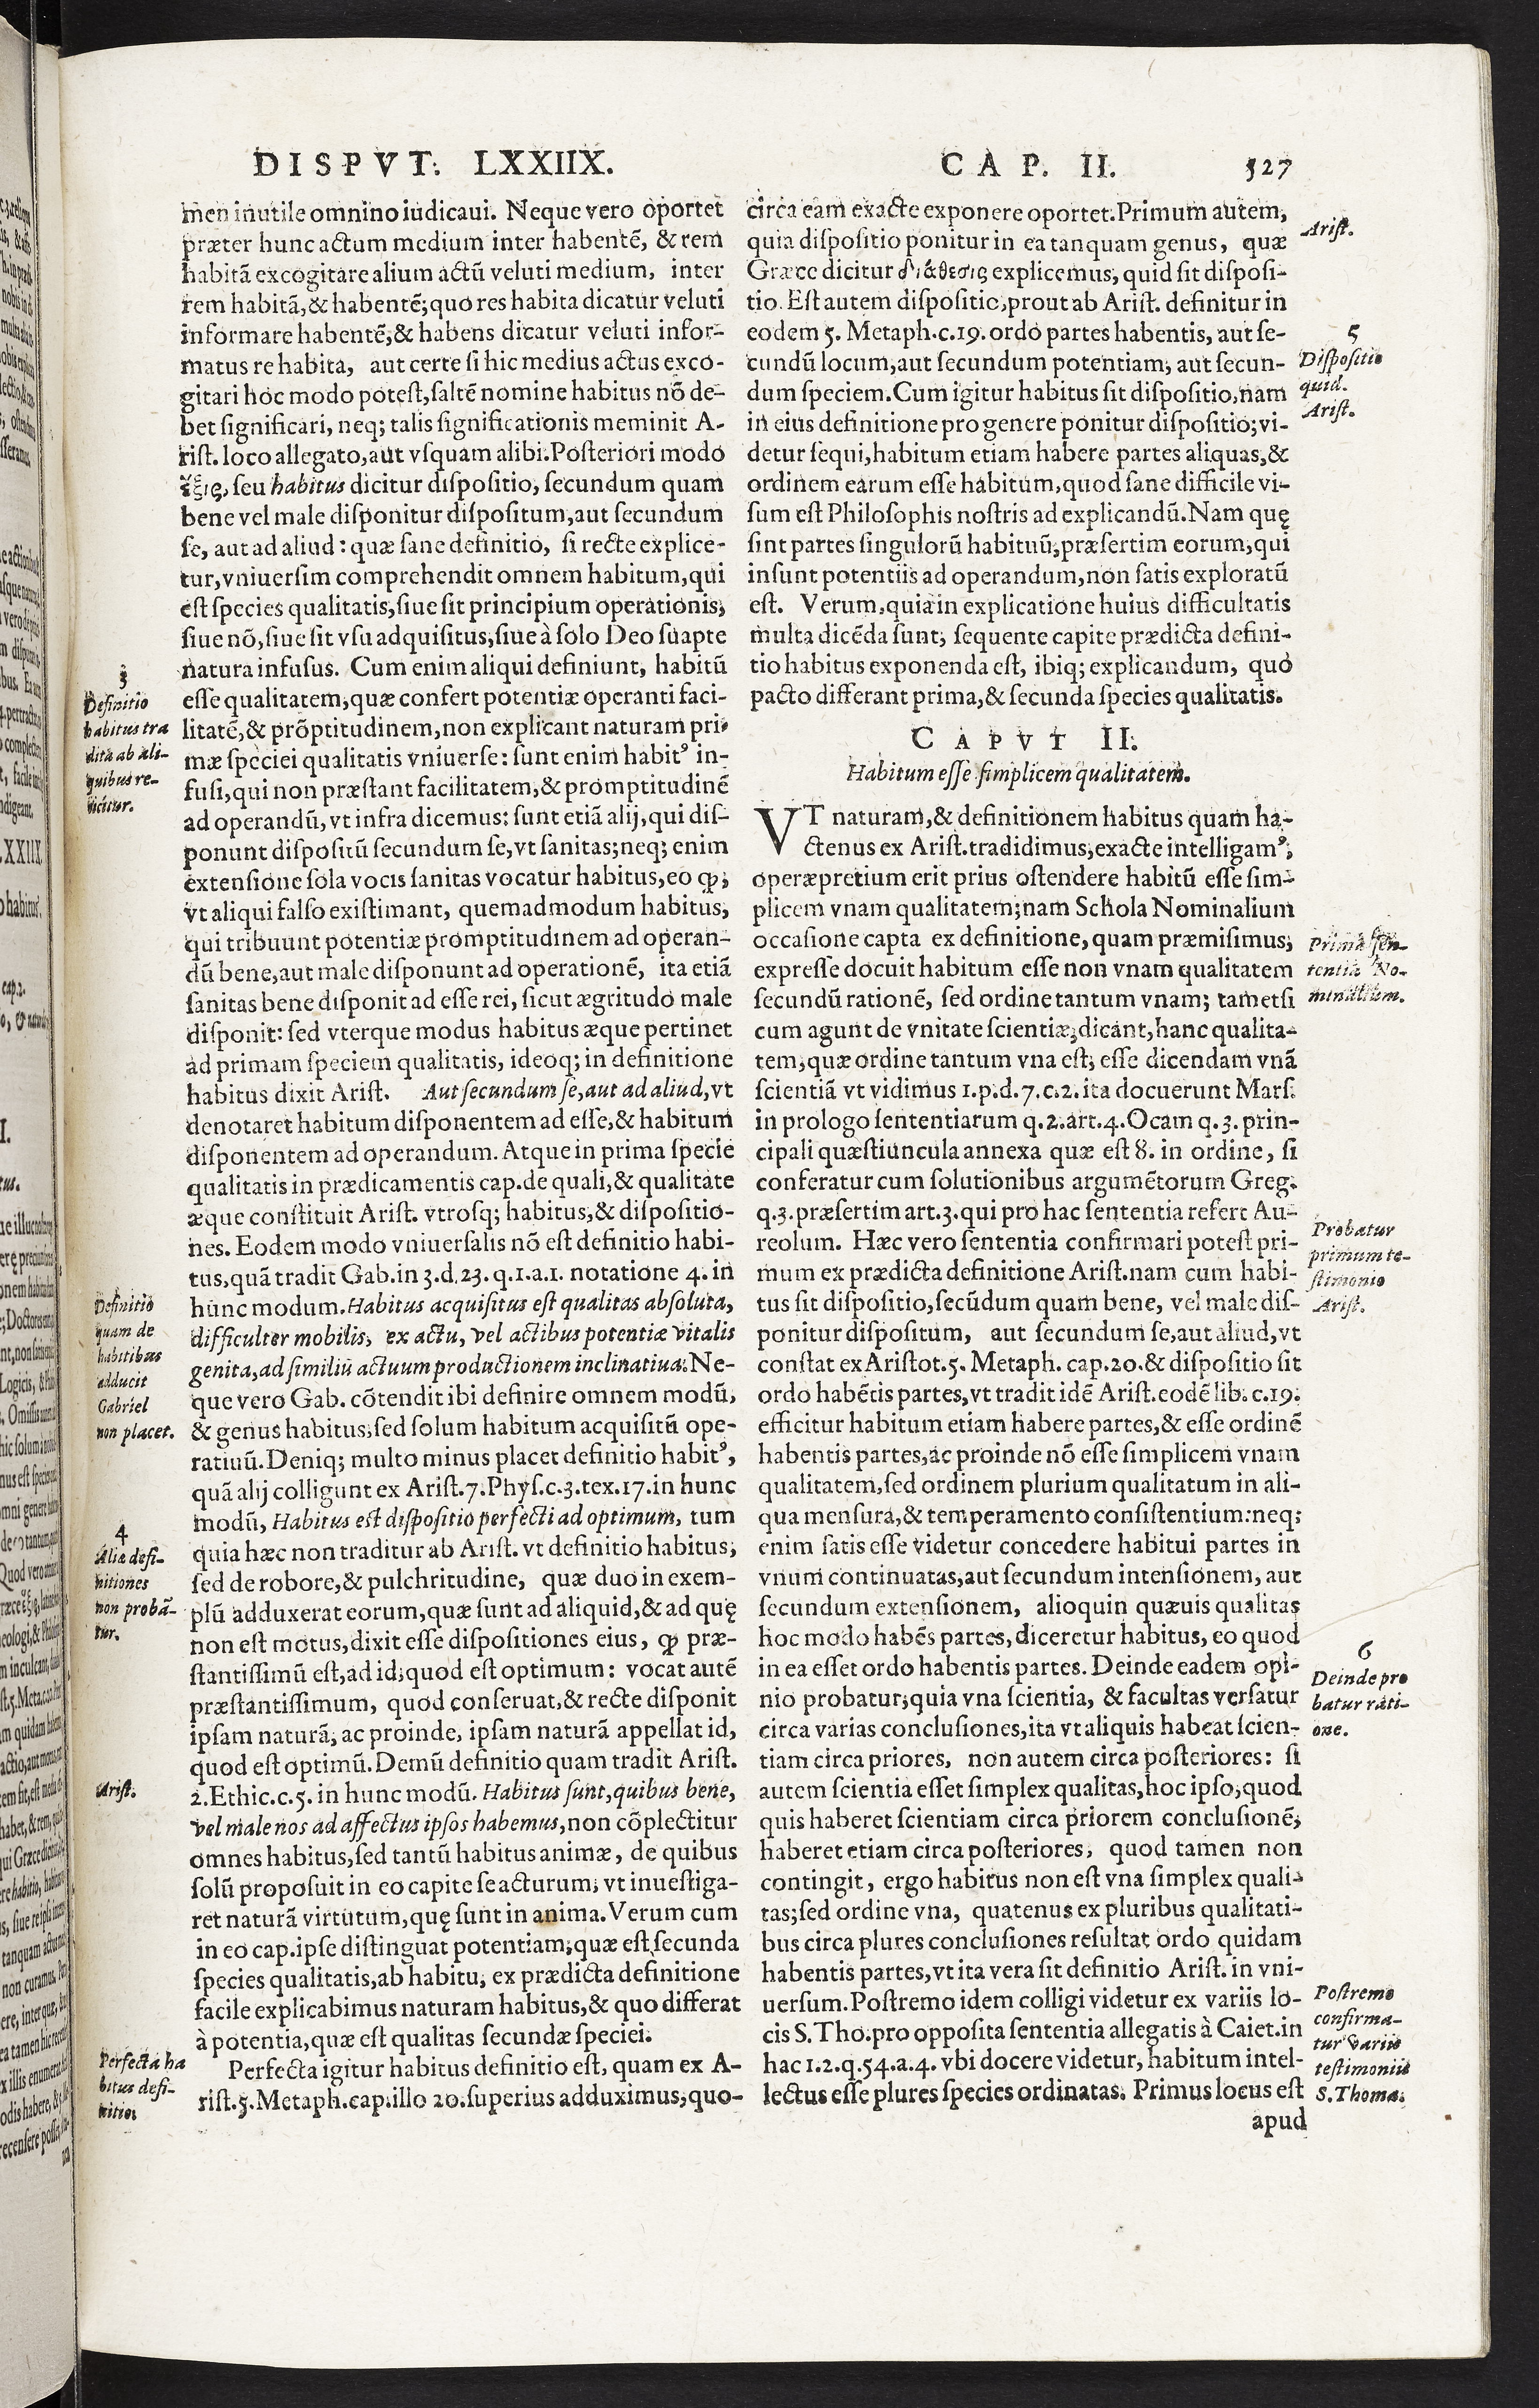 DISPVT. LXXIIX. CAP. II. 527
men inutile omnino iudicaui. Neque vero oportet
præter hunc actum medium inter habentē, & rem
habitā excogitare alium actū veluti medium, inter
rem habitā, & habentē; quo res habita dicatur veluti
informare habentē, & habens dicatur veluti infor-
matus re habita, aut certe si hic medius actus exco-
gitari hoc modo potest, saltē nomine habitus nō de-
bet significari, neq; talis significationis meminit A-
rist. loco allegato, aut vsquam alibi. Posteriori modo
ἕξις, seu habitus dicitur dispositio, secundum quam
bene vel male disponitur dispositum, aut secundum
se, aut ad aliud: quæ sane definitio, si recte explice-
tur, vniuersim comprehendit omnem habitum, qui
est species qualitatis, siue sit principium operationis,
siue nō, siue sit vsu adquisitus, siue à solo Deo suapte
natura infusus. Cum enim aliqui definiunt, habitū
esse qualitatem, quæ confert potentiæ operanti faci-
litatē, & prōptitudinem, non explicant naturam pri-
mæ speciei qualitatis vniuerse: sunt enim habitꝰ in-
fusi, qui non præstant facilitatem, & promptitudinē
ad operandū, vt infra dicemus: sunt etiā alij, qui dis-
ponunt dispositū secundum se, vt sanitas; neq; enim
extensione sola vocis sanitas vocatur habitus, eo ꝙ,
vt aliqui falso existimant, quemadmodum habitus,
qui tribuunt potentiæ promptitudinem ad operan-
dū bene, aut male disponunt ad operationē, ita etiā
sanitas bene disponit ad esse rei, sicut ægritudo male
disponit: sed vterque modus habitus æque pertinet
ad primam speciem qualitatis, ideoq; in definitione
habitus dixit Arist. Aut secundum se, aut ad aliud, vt
denotaret habitum disponentem ad esse, & habitum
disponentem ad operandum. Atque in prima specie
qualitatis in prædicamentis cap. de quali, & qualitate
æque constituit Arist. vtrosq; habitus, & dispositio-
nes. Eodem modo vniuersalis nō est definitio habi-
tus, quā tradit Gab. in 3. d. 23. q. 1. a. 1. notatione 4. in
hunc modum. Habitus acquisitus est qualitas absoluta,
difficulter mobilis, ex actu, vel actibus potentiæ vitalis
genita, ad similiū actuum productionem inclinatiua. Ne-
que vero Gab. cōtendit ibi definire omnem modū,
& genus habitus, sed solum habitum acquisitū ope-
ratiuū. Deniq; multo minus placet definitio habitꝰ,
quā alij colligunt ex Arist. 7. Phys. c. 3. tex. 17. in hunc
modū, Habitus est dispositio perfecti ad optimum, tum
quia hæc non traditur ab Arist. vt definitio habitus,
sed de robore, & pulchritudine, quæ duo in exem-
plū adduxerat eorum, quæ sunt ad aliquid, & ad quę
non est motus, dixit esse dispositiones eius, ꝙ præ-
stantissimū est, ad id, quod est optimum: vocat autē
præstantissimum, quod conseruat, & recte disponit
ipsam naturā, ac proinde, ipsam naturā appellat id,
quod est optimū. Demū definitio quam tradit Arist.
2. Ethic. c. 5. in hunc modū. Habitus sunt, quibus bene,
vel male nos ad affectus ipsos habemus, non cōplectitur
omnes habitus, sed tantū habitus animæ, de quibus
solū proposuit in eo capite se acturum, vt inuestiga-
ret naturā virtutum, quę sunt in anima. Verum cum
in eo cap. ipse distinguat potentiam, quæ est secunda
species qualitatis, ab habitu, ex prædicta definitione
facile explicabimus naturam habitus, & quo differat
à potentia, quæ est qualitas secundæ speciei.
Perfecta igitur habitus definitio est, quam ex A-
rist. 5. Metaph. cap. illo 20. superius adduximus, quo-
3
Definitio
habitus tra
dita ab ali-
quibus re-
iicitur.
Definitio
quam de
habitibus
adducit
Gabriel
non placet.
4
Aliæ defi-
nitiones
non probā-
tur.
Arist.
Perfecta ha
bitus defi-
nitio.
circa eam exacte exponere oportet. Primum autem,
quia dispositio ponitur in ea tanquam genus, quæ
Græce dicitur διάθεσις explicemus, quid sit disposi-
tio. Est autem dispositio, prout ab Arist. definitur in
eodem 5. Metaph. c. 19. ordo partes habentis, aut se-
cundū locum, aut secundum potentiam, aut secun-
dum speciem. Cum igitur habitus sit dispositio, nam
in eius definitione pro genere ponitur dispositio; vi-
detur sequi, habitum etiam habere partes aliquas, &
ordinem earum esse habitum, quod sane difficile vi-
sum est Philosophis nostris ad explicandū. Nam quę
sint partes singulorū habituū, præsertim eorum, qui
insunt potentiis ad operandum, non satis exploratū
est. Verum, quia in explicatione huius difficultatis
multa dicēda sunt, sequente capite prædicta defini-
tio habitus exponenda est, ibiq; explicandum, quo
pacto differant prima, & secunda species qualitatis.
CAPVT II.
Habitum esse simplicem qualitatem.
VT naturam, & definitionem habitus quam ha-
ctenus ex Arist. tradidimus, exacte intelligamꝰ,
operæpretium erit prius ostendere habitū esse sim-
plicem vnam qualitatem; nam Schola Nominalium
occasione capta ex definitione, quam præmisimus,
expresse docuit habitum esse non vnam qualitatem
secundū rationē, sed ordine tantum vnam; tametsi
cum agunt de vnitate scientiæ, dicant, hanc qualita-
tem, quæ ordine tantum vna est, esse dicendam vnā
scientiā vt vidimus 1. p. d. 7. c. 2. ita docuerunt Mars.
in prologo sententiarum q. 2. art. 4. Ocam q. 3. prin-
cipali quæstiuncula annexa quæ est 8. in ordine, si
conferatur cum solutionibus argumētorum Greg.
q. 3. præsertim art. 3. qui pro hac sententia refert Au-
reolum. Hæc vero sententia confirmari potest pri-
mum ex prædicta definitione Arist. nam cum habi-
tus sit dispositio, secūdum quam bene, vel male dis-
ponitur dispositum, aut secundum se, aut aliud, vt
constat ex Aristot. 5. Metaph. cap. 20. & dispositio sit
ordo habētis partes, vt tradit idē Arist. eodē lib. c. 19.
efficitur habitum etiam habere partes, & esse ordinē
habentis partes, ac proinde nō esse simplicem vnam
qualitatem, sed ordinem plurium qualitatum in ali-
qua mensura, & temperamento consistentium: neq;
enim satis esse videtur concedere habitui partes in
vnum continuatas, aut secundum intensionem, aut
secundum extensionem, alioquin quæuis qualitas
hoc modo habēs partes, diceretur habitus, eo quod
in ea esset ordo habentis partes. Deinde eadem opi-
nio probatur, quia vna scientia, & facultas versatur
circa varias conclusiones, ita vt aliquis habeat scien-
tiam circa priores, non autem circa posteriores: si
autem scientia esset simplex qualitas, hoc ipso, quod
quis haberet scientiam circa priorem conclusionē,
haberet etiam circa posteriores, quod tamen non
contingit, ergo habitus non est vna simplex quali-
tas; sed ordine vna, quatenus ex pluribus qualitati-
bus circa plures conclusiones resultat ordo quidam
habentis partes, vt ita vera sit definitio Arist. in vni-
uersum. Postremo idem colligi videtur ex variis lo-
cis S. Tho. pro opposita sententia allegatis à Caiet. in
hac 1. 2. q. 54. a. 4. vbi docere videtur, habitum intel-
lectus esse plures species ordinatas. Primus locus est
apud
Arist.
5
Dispositio
quid.
Arist.
Prima sen-
tentia No-
minalium.
Probatur
primum te-
stimonio
Arist.
6
Deinde pro
batur rati-
one.
Postremo
confirma-
tur variis
testimoniis
S. Thoma.